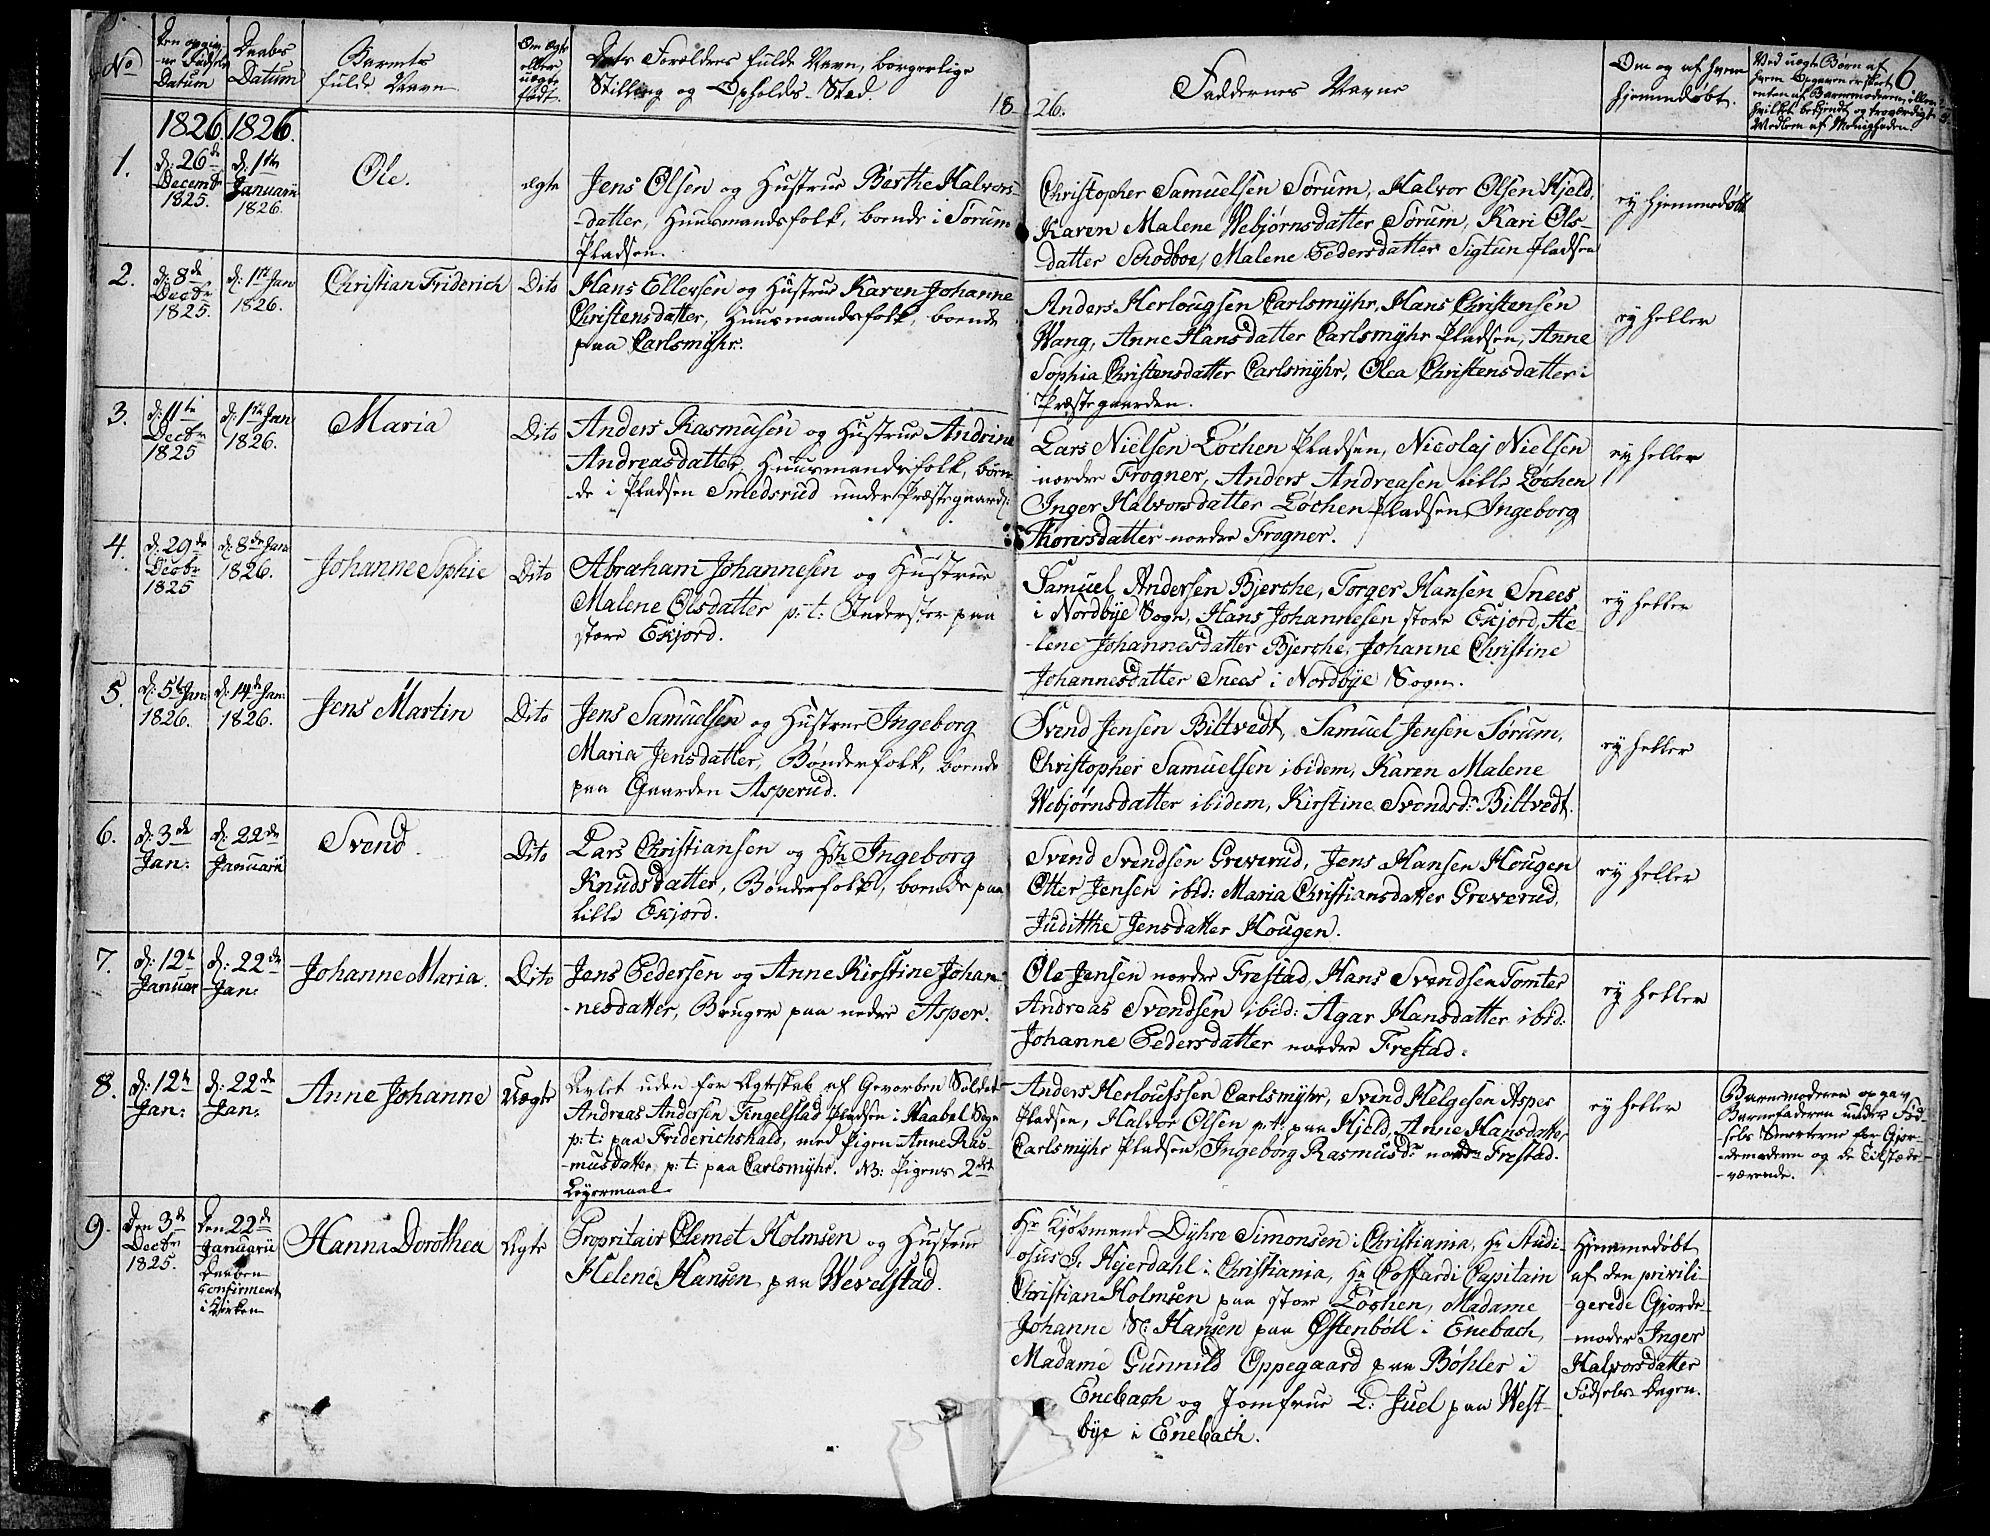 No
Den opgiv-
-ne Fødsels
Datum
Daabs
Datum
Barnets
fulde Navn
Om Ægte
eller
uægte
født.
Dets Forældres fulde Navn, borgerlige
Stilling og Opholds-Sted.
18
26.
Faddernes Navne
Om og af hvem
hjemmedøbt.
Ved uægte Børn af
hvem Opgaven er skeet
enten af Barnemoderen, eller
hvilket bekjendt og troværdigt
Medlem af Menigheden
6
1826.
1826.
1.
d: 26de
Decembr
1825.
d: 1ste
Januarii
1826.
Ole.
ægte
Jens Olsen og Hustrue Berthe Halvors-
-datter, Huusmandsfolk, boende i Sørum
Pladsen.
Christopher Samuelsen Sørum, Halvor Olsen Hjeld,
Karen Malene Webjørnsdatter Sørum, Kari Ols-
-datter Schodboe, Malene Pedersdatter Sigtun Pladsen
ey hjemmedøbt
2.
d: 8de
Decbr
1825.
d: 1st Jan
1826.
Christian Friderich
Dito
Hans Ellevsen og Hustrue Karen Johanne
Christensdatter, Huusmandsfolk, boende
paa Carlsmÿhr.
Anders Herlougsen Carlsmÿhr, Hans Christensen
Wang, Anne Hansdatter Carlsmÿhr Pladsen, Anne
Sophia Christensdatter Carlsmÿhr, Olea Christensdatter i
Præstegaarden.
ey heller
3.
d: 11te
Decbr
1825
d: 1ste Jan
1826.
Maria
Dito
Anders Rasmusen og Hustrue Andrine
Andreasdatter, Huusmandsfolk, boen-
-de i Pladsen Smedsrud under Præstegaard:
Lars Nielsen Løchen Pladsen, Nicolaj Nielsen
nordre Frogner, Anders Andreasen lille Løchen
Inger Halvorsdatter Løchen Pladsen, Ingeborg
Thoresdatter nordre Frogner.
ey heller
4.
d: 29de
Decbr
1825
d: 8de Jan
1826.
Johanne Sophie
Dito
Abraham Johannesen og Hustrue
Malene Olsdatter p: t: Inderster paa
store Exjord.
Samuel Andersen Bjerche, Torger Hansen Snees
i Nordbÿe Sogn, Hans Johannesen store Exjord, He-
-lene Johannesdatter Bjerche, Johanne Christine
Johannesdatter Snees i Nordbÿe Sogn.
ey heller
5.
d: 5te Jan:
1826.
d: 14de Jan:
1826.
Jens Martin
Dito
Jens Samuelsen og Hustrue Ingeborg
Maria Jensdatter, Bønderfolk, boende
paa Gaarden Asperud.
Svend Jensen Biltvedt, Samuel Jensen Sørum,
Christopher Samuelsen ibidem, Karen Malene
Webjørnsdatter ibidem, Kirstine Svendsdr Biltvedt.
ey heller
6.
d: 3de
Jan:
d: 22de
Januarii
Svend.
Dito
Lars Christiansen og Hst: Ingeborg
Knudsdatter, Bønderfolk, boende paa
lille Exjord.
Svend Svendsen Greverud, Jens Hansen Hougen
Otter Jensen ibid: Maria Christiansdatter Greverud,
Judithe Jensdatter Hougen.
ey heller
7.
d: 12te
Januar
d: 22de
Jan:
Johanne Maria.
Dito
Jens Pedersen og Anne Kirstine Johan-
-nesdatter, Bruger paa nedre Asper.
Ole Jensen nordre Frestad, Hans Svendsen Tomter
Andreas Svendsen ibid: Agar Hansdatter ibid:
Johanne Pedersdatter nordre Frestad.
ey heller
8.
d: 12te
Jan:
d: 22de
Jan:
Anne Johanne
Uægte
Avlet uden for Ægteskab af Gevorben Soldat
Andreas Andersen Tengelstad Pladsen i Haabøl Sogn
p: t: paa Friderichshald, med Pigen Anne Ras-
-musdatter, p: t: paa Carlsmÿhr. NB: Pigens 2det
Leyermaal
Anders Herloufssen Carlsmÿhr, Svend Helgesen Asper
Pladsen, Halvor Olsen p: t: paa Hjeld, Anne Hansdatter
Carlsmÿhr Pladsen, Ingeborg Rasmusdr nordre Frestad.
ey heller
Barnemoderen opgav
Barnefaderen under Fød-
sels Smerterne for Gjor-
-demoderen og de Tilstæde-
-værende.
9.
Den 3de
Decbr
1825.
Den 22de
Januarii
Daaben
confirmeret
i Kirken
Hanna Dorothea
Ægte
Propritair Clemet Holmsen og Hustrue
Helene Hansen paa Wevelstad.
Hr Kjøbmand Dÿhre Simonsen i Christiania, Hr Studi-
osus J. Hejerdahl i Christiania, Hr Coffardi Capitain
Christian Holmsen paa store Løchen, Madame
Johanne S: Hansen paa Østenbøll i Enebach,
Madame Gunnild Oppegaard paa Bøhler i
Enebach og Jomfrue D: Juel paa West-
bÿe i Enebach.
Hjemmedøbt
af den privili-
gerede Gjorde-
-moder Inger
Halvorsdatter
Fødsels-Dagen.